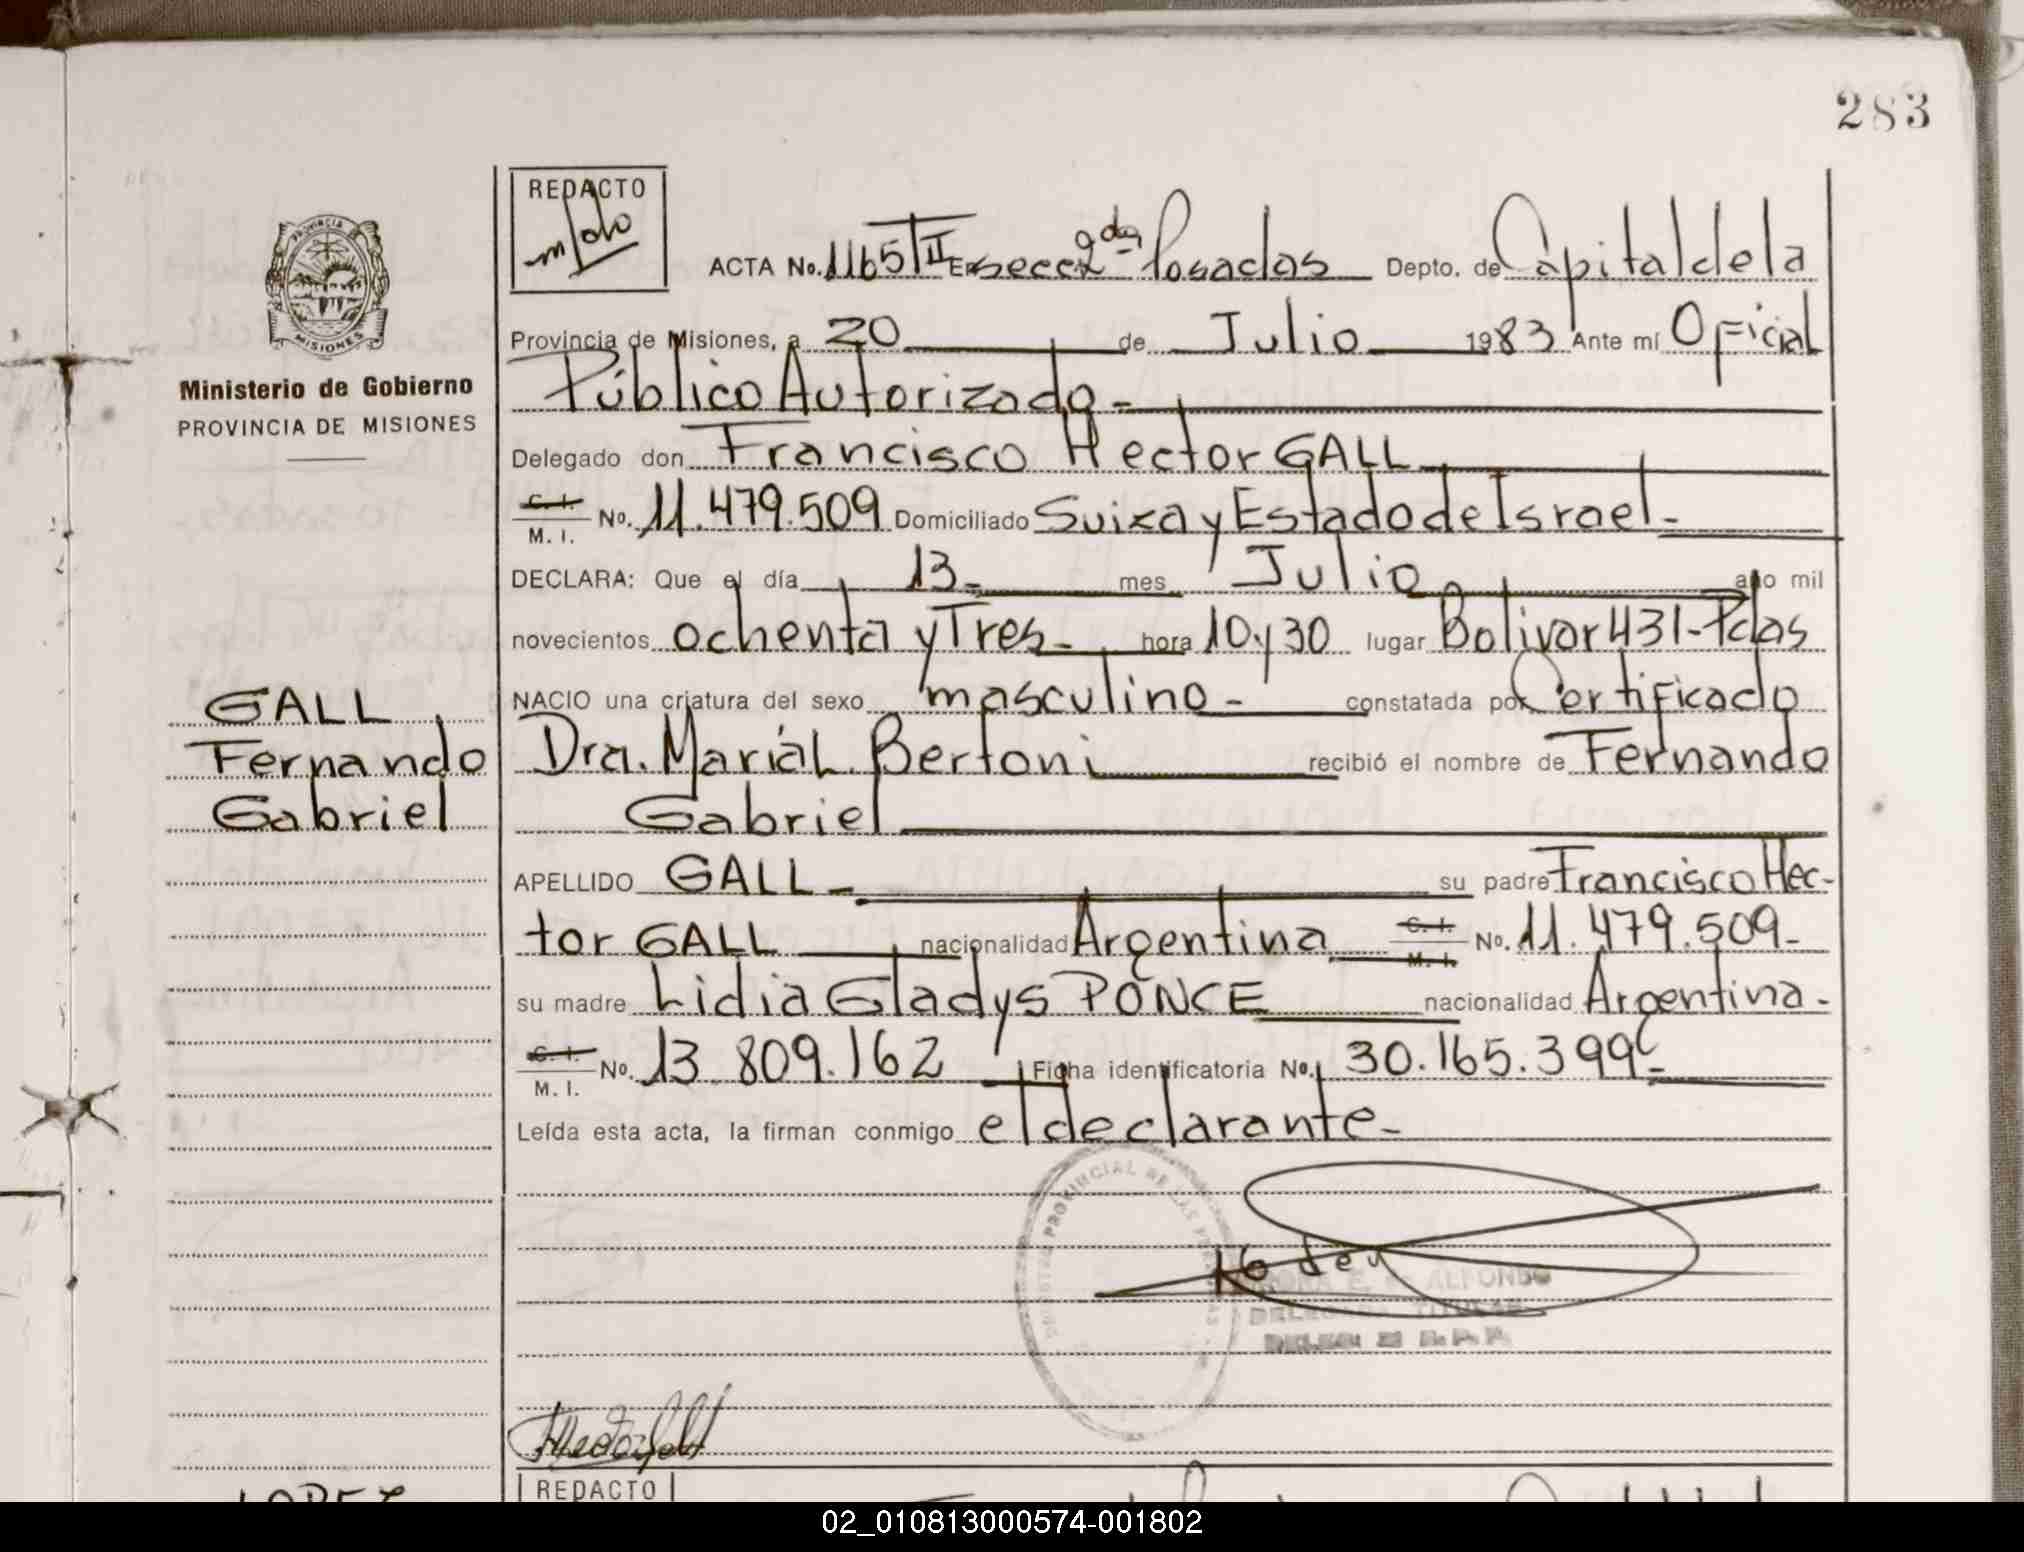 283
REDACTO
ACTA No. 1165 TII En secc 2da Posadas Depto. de Capital de la
PROVINCIA
MISIONES
Provincia de Misiones, a 20 de Julio 1983 Ante mí Oficial
Ministerio de Gobierno
PROVINCIA DE MISIONES
Público Autorizado -
Delegado don Francisco Hector GALL
C. I. M. I. No. 11.479.509 Domiciliado Suiza y Estado de Israel -
DECLARA: Que el día 13 - mes Julio año mil
novecientos ochenta y Tres - hora 10 y 30 lugar Bolivar 431 - Pdas
NACIO una criatura del sexo masculino - constatada por Certificado
Dra. María L. Bertoni recibió el nombre de Fernando
Gabriel
GALL
Fernando
Gabriel
APELLIDO GALL - su padre Francisco Hec-
tor GALL nacionalidad Argentina C. I. M. I. No. 11.479.509 -
su madre Lidia Gladys PONCE nacionalidad Argentina -
C. I. M. I. No. 13.809.162 Ficha identificatoria No. 30.165.399 -
Leída esta acta, la firman conmigo el declarante -
PROVINCIAL DE LAS PERSONAS
E. de ALFONSO
DELEGADA TITULAR
REDACTO
LOPEZ
02_010813000574-001802